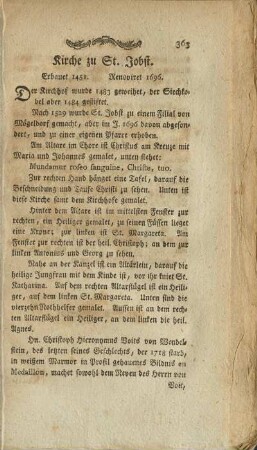 363
Kirche zu St. Jobst.
Erbauet 1452. Renoviret 1696.
Der Kirchhof wurde 1483 geweihet, der Siechko-
bel aber 1484 gestiftet.
Nach 1529 wurde St. Jobst zu einem Filial von
Mögeldorf gemacht, aber im J. 1696 davon abgeson-
dert, und zu einer eigenen Pfarre erhoben.
Am Altare im Chore ist Christus am Kreuze mit
Maria und Johannes gemalet, unten stehet:
Mundamur roseo sanguine, Christe, tuo.
Zur rechten Hand hänget eine Tafel, darauf die
Beschneidung und Taufe Christi zu sehen. Unten ist
diese Kirche samt dem Kirchhofe gemalet.
Hinter dem Altare ist im mittelsten Fenster zur
rechten, ein Heiliger gemalet, zu seinen Füssen lieget
eine Krone; zur linken ist St. Margareta. Am
Fenster zur rechten ist der heil. Christoph; an dem zur
linken Antonius und Georg zu sehen.
Nahe an der Kanzel ist ein Altärlein, darauf die
heilige Jungfrau mit dem Kinde ist, vor ihr kniet St.
Katharina. Auf dem rechten Altarflügel ist ein Heili-
ger, auf dem linken St. Margareta. Unten sind die
vierzehn Nothhelfer gemalet. Aussen ist an dem rech-
ten Altarflügel ein Heiliger, an dem linken die heil.
Agnes.
Hn. Christoph Hieronymus Voits von Wendel-
stein, des letzten seines Geschlechts, der 1718 starb,
in weissem Marmor in Profil gehauenes Bildnis en
Medaillon, machet sowohl dem Neven des Herrn von
Voit,